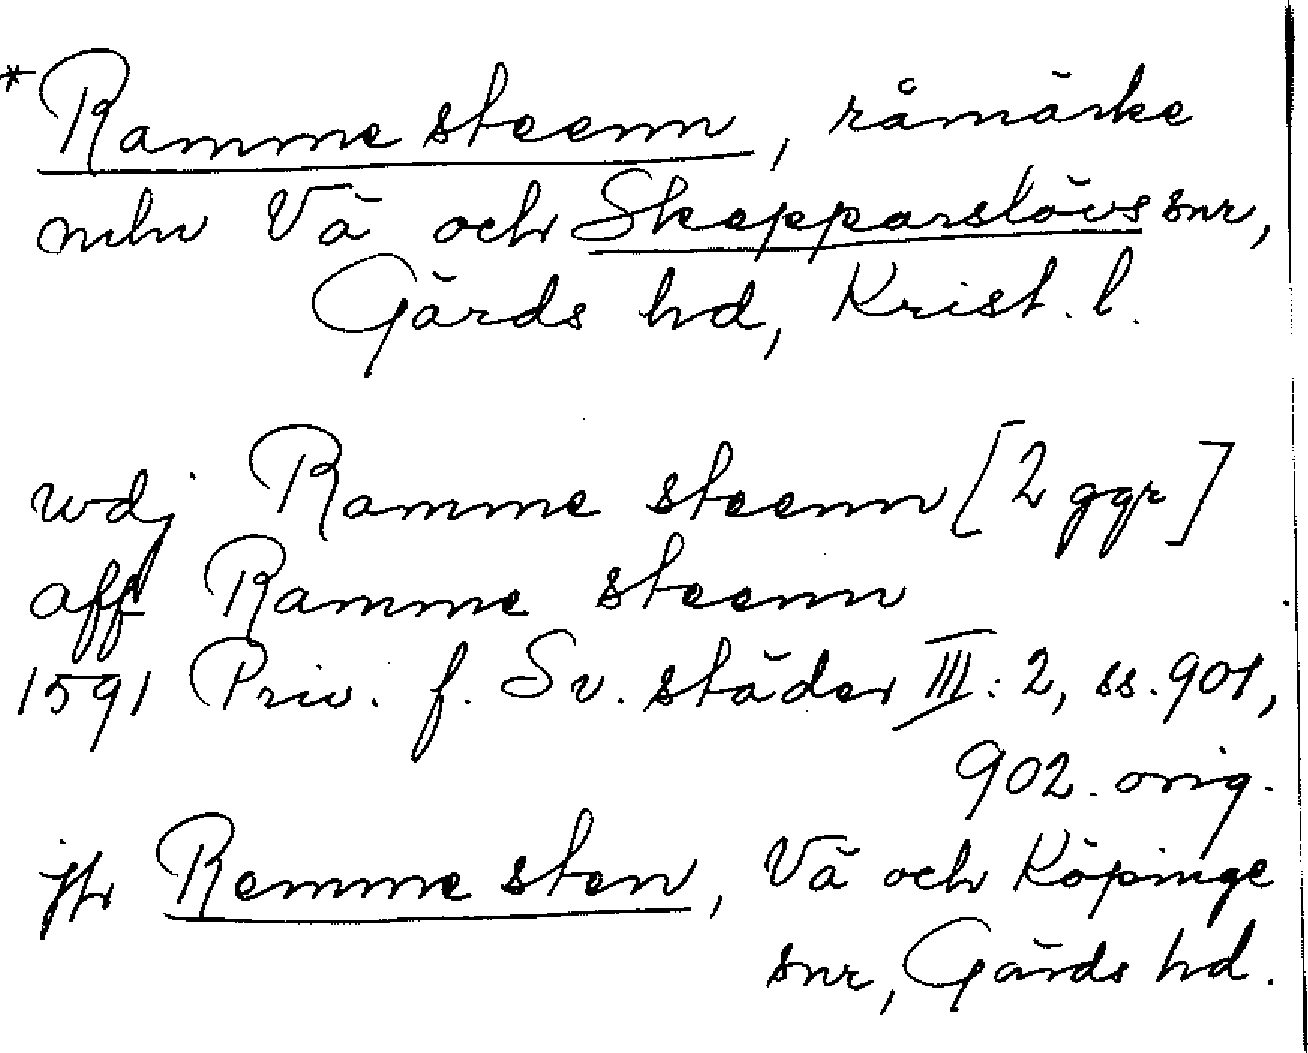 *Ramme steenn, råmärke
mln Vä och Skepparslövs snr,
Gärds hd, Krist. l.
wdj Ramme steenn [2 ggr]
aff Ramme steenn
1591 Priv. f. Sv. städer III:2, ss. 901,
902. orig.
jfr Remme sten, Vä och Köpinge
snr, Gärds hd.